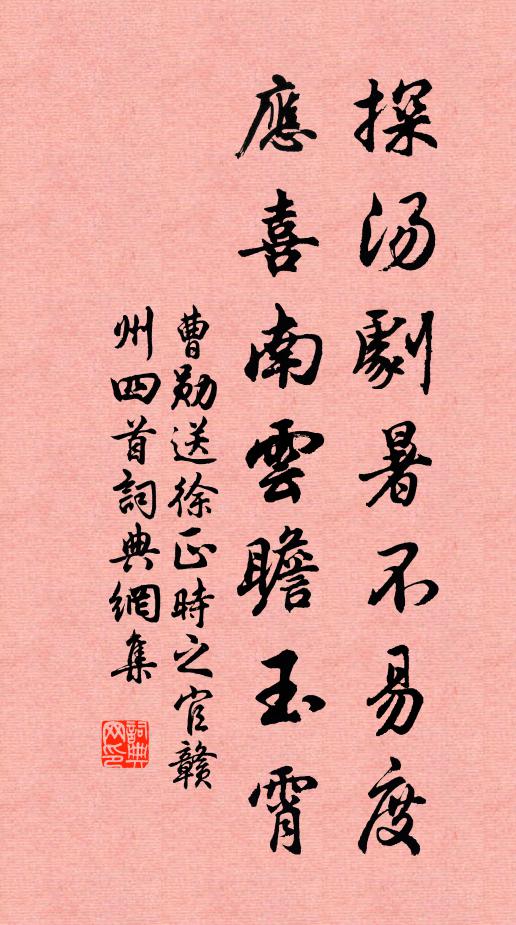 探汤劇暑不易度
應喜南雲瞻玉霄
曹勛送徐正時之官贛
州四首詞典網集
詞典
网印